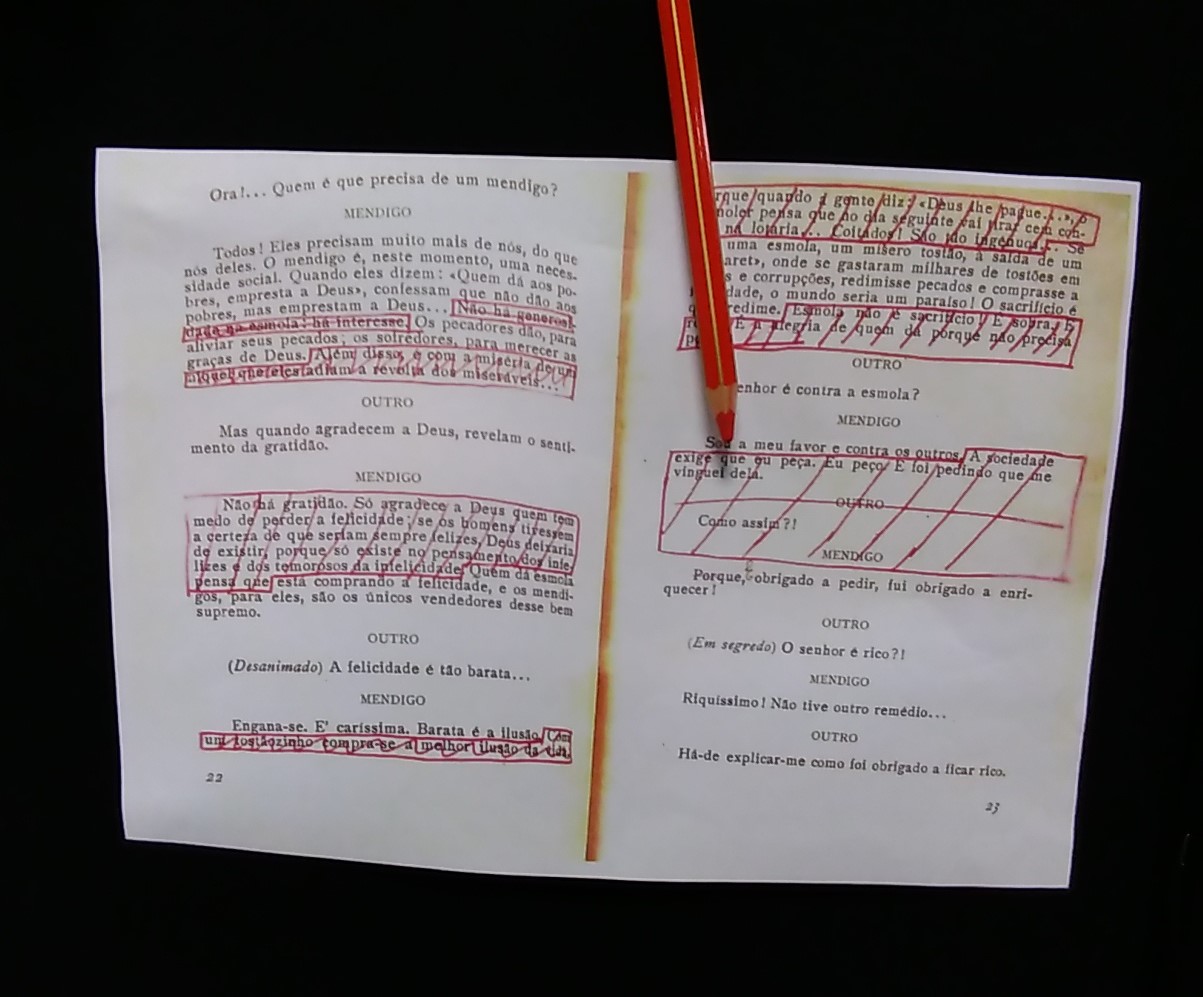 Ora!... Quem é que precisa de um mendigo?
MENDIGO
Todos! Eles precisam muito mais de nós, do que
nós deles. O mendigo é, neste momento, uma neces-
sidade social. Quando eles dizem: «Quem dá aos po-
bres, empresta a Deus», confessam que não dão aos
pobres, mas emprestam a Deus... Não há generosi-
dade na esmola: há interesse. Os pecadores dão, para
aliviar seus pecados; os sofredores, para merecer as
graças de Deus. Além disso, é com a miséria de um
níquel que eles adiam a revolta dos miseráveis...
OUTRO
Mas quando agradecem a Deus, revelam o senti-
mento da gratidão.
MENDIGO
Não há gratidão. Só agradece a Deus quem tem
medo de perder a felicidade; se os homens tivessem
a certeza de que seriam sempre felizes, Deus deixaria
de existir, porque só existe no pensamento dos infe-
lizes e dos temorosos da infelicidade. Quem dá esmola
pensa que está comprando a felicidade, e os mendi-
gos, para eles, são os únicos vendedores desse bem
supremo.
OUTRO
(Desanimado) A felicidade é tão barata...
MENDIGO
Engana-se. E' caríssima. Barata é a ilusão. Com
um tostãozinho compra-se a melhor ilusão da vida,
22
rque quando a gente diz: «Deus lhe pague...», o
moler pensa que no dia seguinte vai tirar cem con-
na lotaria... Coitados! São tão ingénuos... Se
uma esmola, um mísero tostão, à saída de um
aret», onde se gastaram milhares de tostões em
s e corrupções, redimisse pecados e comprasse a
dade, o mundo seria um paraíso! O sacrifício é
redime. Esmola não é sacrifício! É sobra. É
É a alegria de quem dá porque não precisa
OUTRO
enhor é contra a esmola?
MENDIGO
Sou a meu favor e contra os outros. A sociedade
exige que eu peça. Eu peço. E foi pedindo que me
vinguei dela.
OUTRO
Como assim?!
MENDIGO
Porque, obrigado a pedir, fui obrigado a enri-
quecer!
OUTRO
(Em segredo) O senhor é rico?!
MENDIGO
Riquíssimo! Não tive outro remédio...
OUTRO
Há-de explicar-me como foi obrigado a ficar rico.
23